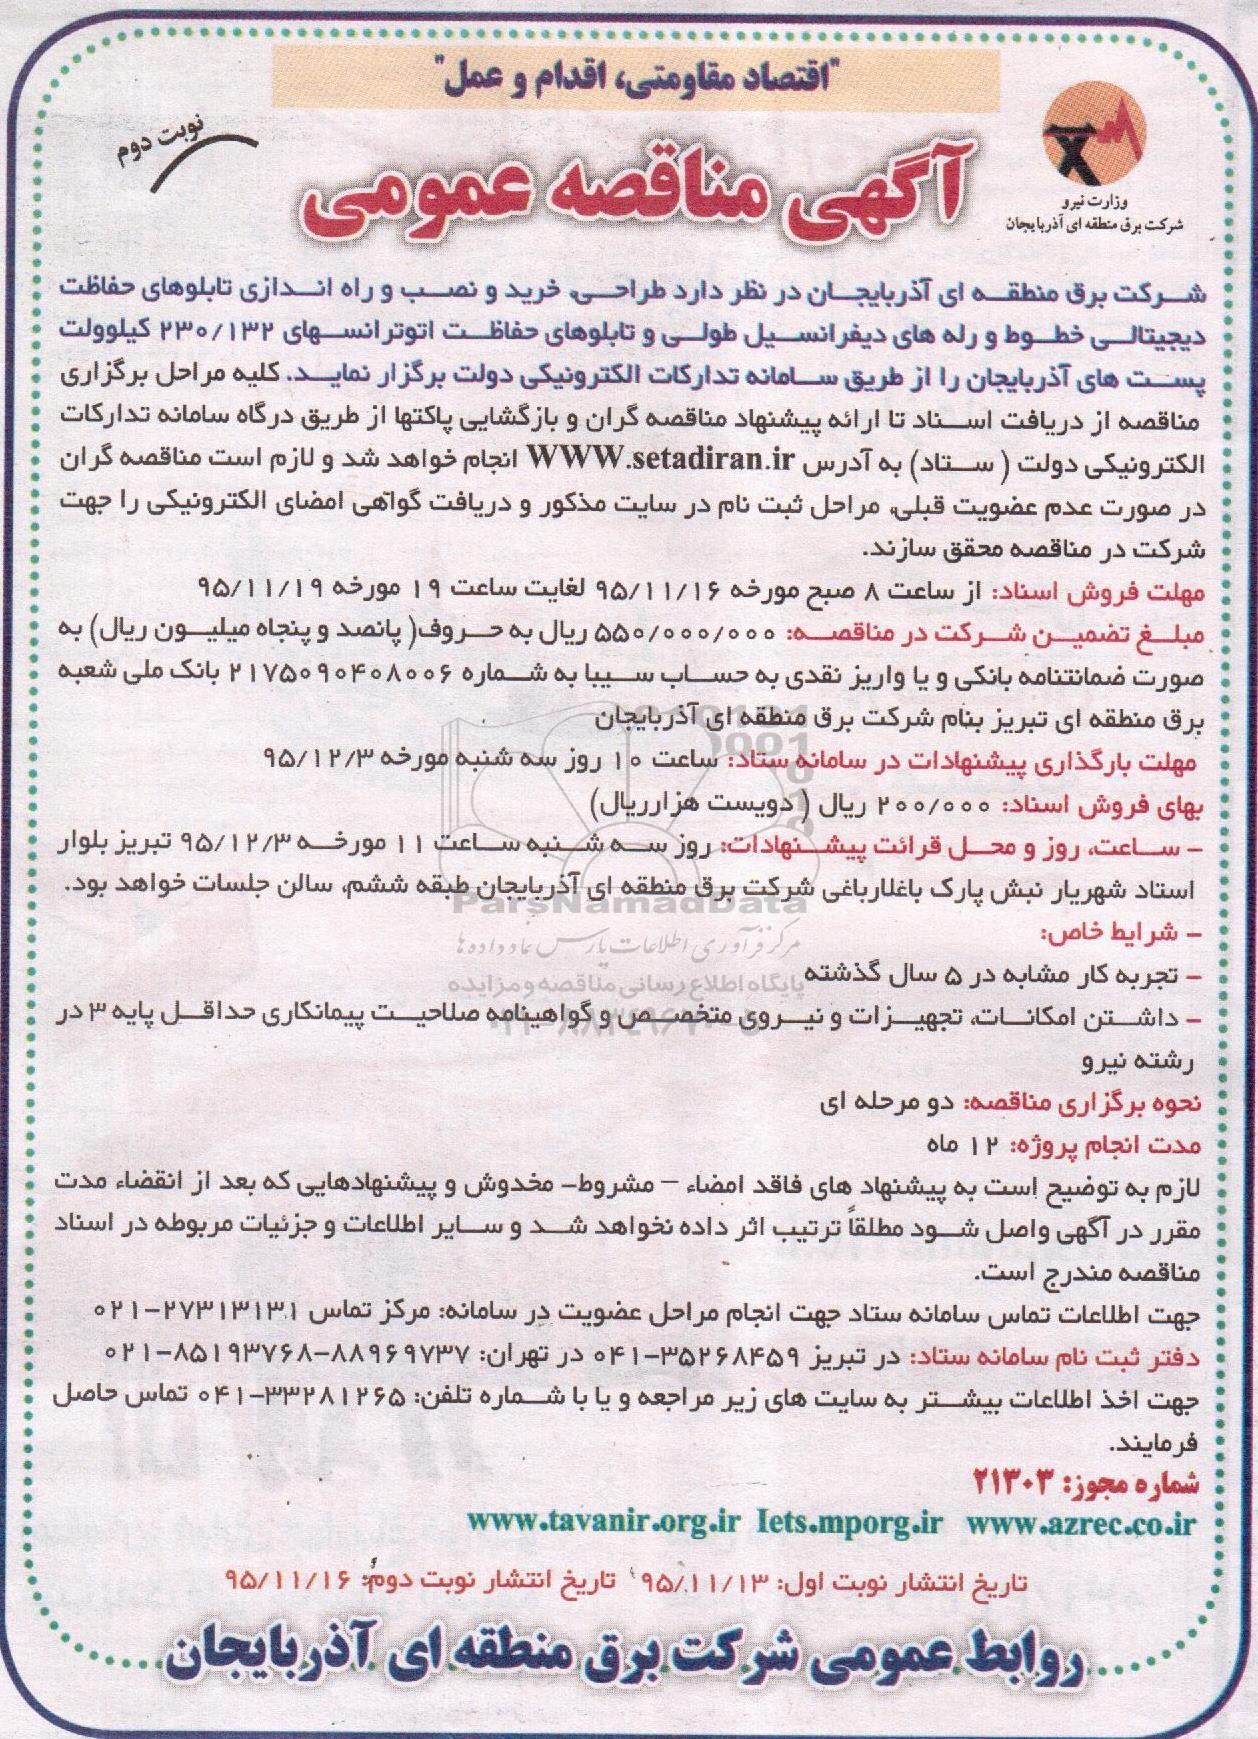 "اقتصاد مقاومتی، اقدام و عمل"
نوبت دوم
آگهی مناقصه عمومی
وزارت نیرو
شرکت برق منطقه ای آذربایجان
شرکت برق منطقه ای آذربایجان در نظر دارد طراحی، خرید و نصب و راه اندازی تابلوهای حفاظت
دیجیتالی خطوط و رله های دیفرانسیل طولی و تابلوهای حفاظت اتوترانسهای ۲۳۰/۱۳۲ کیلوولت
پست های آذربایجان را از طریق سامانه تدارکات الکترونیکی دولت برگزار نماید. کلیه مراحل برگزاری
مناقصه از دریافت اسناد تا ارائه پیشنهاد مناقصه گران و بازگشایی پاکتها از طریق درگاه سامانه تدارکات
الکترونیکی دولت (ستاد) به آدرس WWW.setadiran.ir انجام خواهد شد و لازم است مناقصه گران
در صورت عدم عضویت قبلی، مراحل ثبت نام در سایت مذکور و دریافت گواهی امضای الکترونیکی را جهت
شرکت در مناقصه محقق سازند.
مهلت فروش اسناد: از ساعت ۸ صبح مورخه ۹۵/۱۱/۱۶ لغایت ساعت ۱۹ مورخه ۹۵/۱۱/۱۹
مبلغ تضمین شرکت در مناقصه: ۵۵۰/۰۰۰/۰۰۰ ریال به حروف( پانصد و پنجاه میلیون ریال) به
صورت ضمانتنامه بانکی و یا واریز نقدی به حساب سیبا به شماره ۲۱۷۵۰۹۰۴۰۸۰۰۶ بانک ملی شعبه
برق منطقه ای تبریز بنام شرکت برق منطقه ای آذربایجان
مهلت بارگذاری پیشنهادات در سامانه ستاد: ساعت ۱۰ روز سه شنبه مورخه ۹۵/۱۲/۳
بهای فروش اسناد: ۲۰۰/۰۰۰ ریال (دویست هزارریال)
– ساعت، روز و محل قرائت پیشنهادات: روز سه شنبه ساعت ۱۱ مورخه ۹۵/۱۲/۳ تبریز بلوار
استاد شهریار نبش پارک باغلارباغی شرکت برق منطقه ای آذربایجان طبقه ششم، سالن جلسات خواهد بود.
ParsNamadData
مرکز فرآوری اطلاعات پارس نماد داده ها
– شرایط خاص:
– تجربه کار مشابه در ۵ سال گذشته
پایگاه اطلاع رسانی مناقصه و مزایده
– داشتن امکانات، تجهیزات و نیروی متخصص و گواهینامه صلاحیت پیمانکاری حداقل پایه ۳ در
رشته نیرو
نحوه برگزاری مناقصه: دو مرحله ای
مدت انجام پروژه: ۱۲ ماه
لازم به توضیح است به پیشنهاد های فاقد امضاء – مشروط– مخدوش و پیشنهادهایی که بعد از انقضاء مدت
مقرر در آگهی واصل شود مطلقاً ترتیب اثر داده نخواهد شد و سایر اطلاعات و جزئیات مربوطه در اسناد
مناقصه مندرج است.
جهت اطلاعات تماس سامانه ستاد جهت انجام مراحل عضویت در سامانه: مرکز تماس ۲۷۳۱۳۱۳۱-۰۲۱
دفتر ثبت نام سامانه ستاد: در تبریز ۳۵۲۶۸۴۵۹-۰۴۱ در تهران: ۸۸۹۶۹۷۳۷-۸۵۱۹۳۷۶۸-۰۲۱
جهت اخذ اطلاعات بیشتر به سایت های زیر مراجعه و یا با شماره تلفن: ۳۳۲۸۱۲۶۵-۰۴۱ تماس حاصل
فرمایند.
شماره مجوز: ۲۱۳۰۳
www.tavanir.org.ir Iets.mporg.ir www.azrec.co.ir
تاریخ انتشار نوبت اول: ۹۵/۱۱/۱۳ تاریخ انتشار نوبت دوم: ۹۵/۱۱/۱۶
روابط عمومی شرکت برق منطقه ای آذربایجان